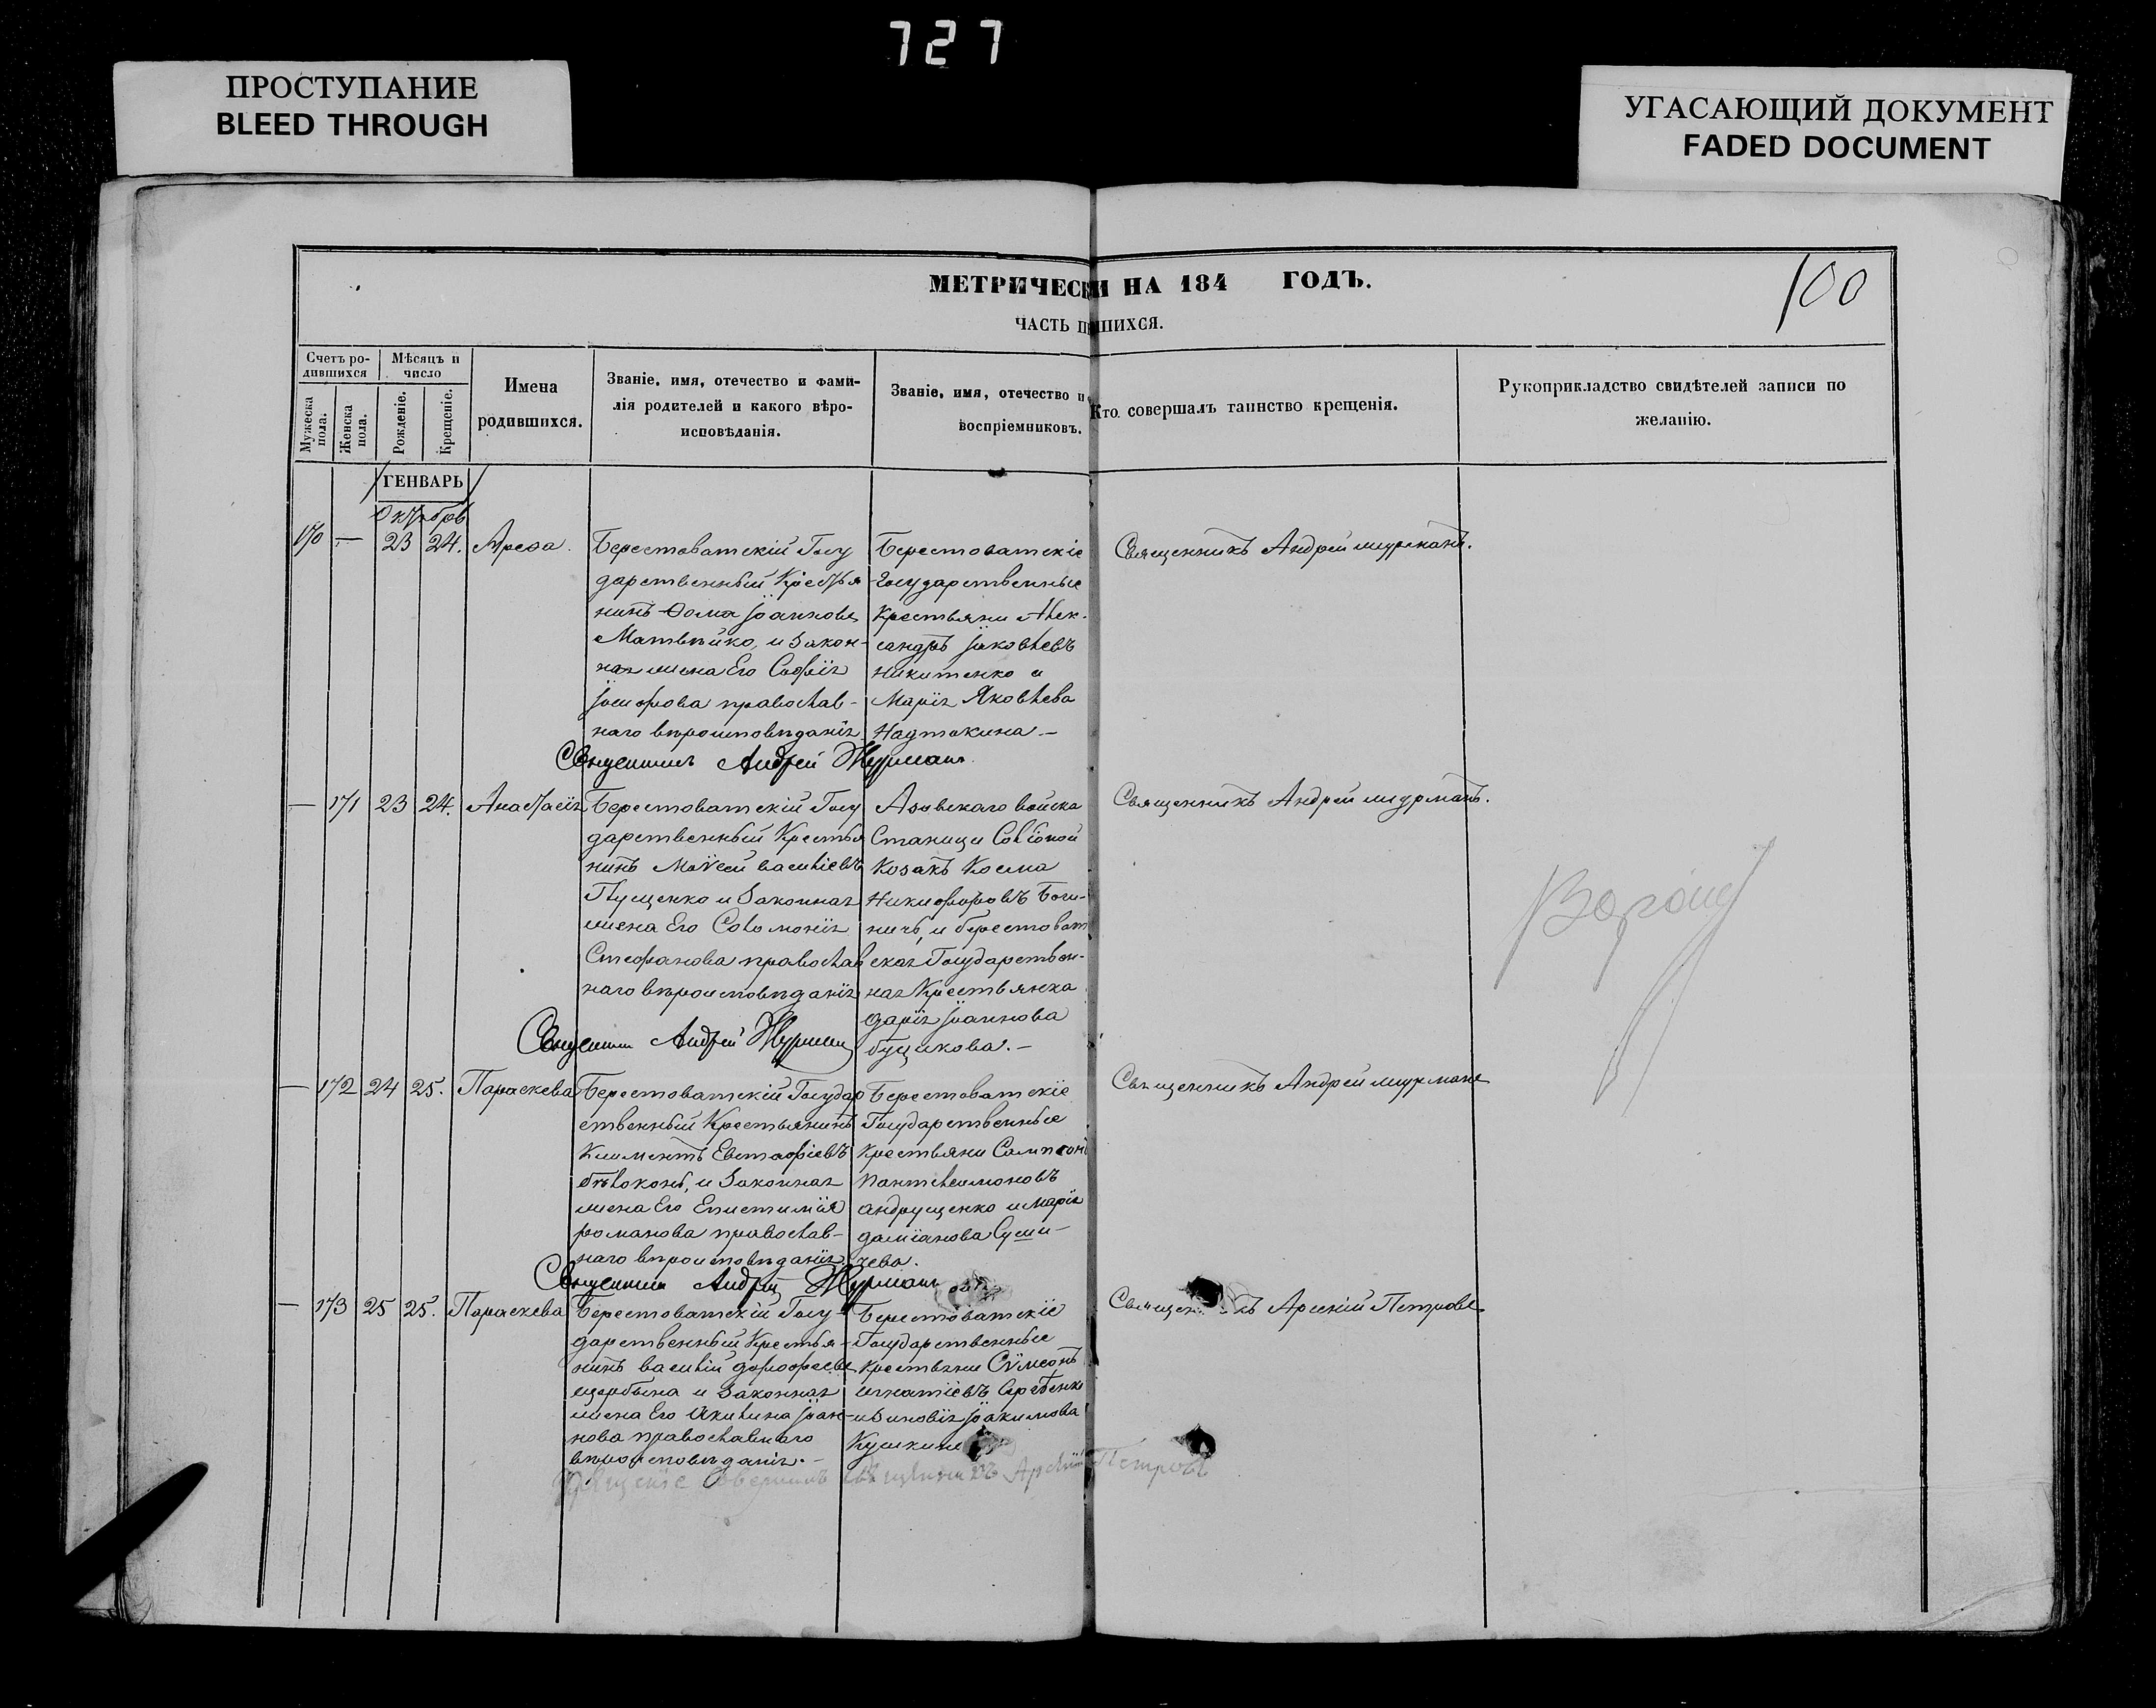 727
ПРОСТУПАНИЕ
BLEED THROUGH
УГАСАЮЩИЙ ДОКУМЕНТ
FADED DOCUMENT
МЕТРИЧЕСК И НА 184 ГОДЪ.
100
ЧАСТЬ П ШИХСЯ.
Счетъ ро-
дившихся
Мѣсяцъ и
число
Мужеска
пола.
Женска
пола.
Рожденіе.
Крещеніе.
Имена
родившихся.
Званіе, имя, отечество и фами-
лія родителей и какого вѣро-
исповѣданія.
Званіе, имя, отечество и
воспріемниковъ.
Кто совершалъ таинство крещенія.
Рукоприкладство свидѣтелей записи по
желанію.
ГЕНВАРЬ
Октябрь
170 — 23 24. Арефа.
Берестоватскій Госу
дарственный Крестья
нинъ Ѳома Іоанновъ
Матвѣйко, и закон-
ная жена Его Софія
Іосифова православ-
наго вѣроисповѣданія
Берестоватскіе
Государственные
Крестьяни Алек-
сандръ Іаковлевъ
Никитенко и
Марія Яковлева
Надтокина.—
Священникъ Андрей Журманъ.
Священникъ Андрей Журманъ
— 171 23 24. Анастасія
Берестоватскій Госу
дарственный Крестья
нинъ Моѵсей Василіевъ
Пущенко и Законная
жена Его Соломонія
Стефанова православ
наго вѣроисповѣданія
Азовскаго войска
Станици
Козакъ Косма
Никифоровъ
и берестоват
ская Государствен-
ная Крестьянка
дарія Іоаннова
буцикова.—
Священникъ Андрей журманъ.
Священник Андрей Журман
— 172 24 25. Параскева
Берестоватскій Государ
ственный Крестьянинъ
Климентъ Евстафіевъ
бѣлоконь, и Законная
жена Его Епистимія
романова православ-
наго вѣроисповѣданія.
Берестоватскіе
Государственные
Крестьяни Сампсонъ
Пантелеимоновъ
андрущенко и марія
даміанова Суши-
чева.
Священникъ Андрей журманъ
Священник Андрей Журманъ
— 173 25 25. Параскева
Берестоватскій Госу-
дарственный Крестья-
нинъ василій дорофеевъ
щербына и Законная
жена Его Акилина Іоан-
нова православнаго
вѣроисповѣданія.—
Берестоватскіе
Государственные
Крестьяни Сѵмеонъ
игнатіевъ
и Зиновія Іоакимова
Священ къ Арсеній Петровъ
Крещеніе Совершилъ священникъ Арсеній Петровъ